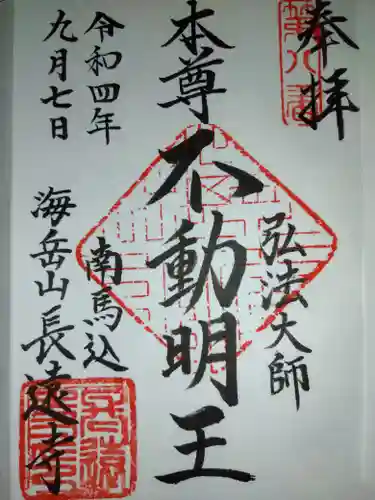 奉拝
第八番
弘法大師
本尊 不動明王
令和四年
九月七日
南馬込
海岳山長遠寺